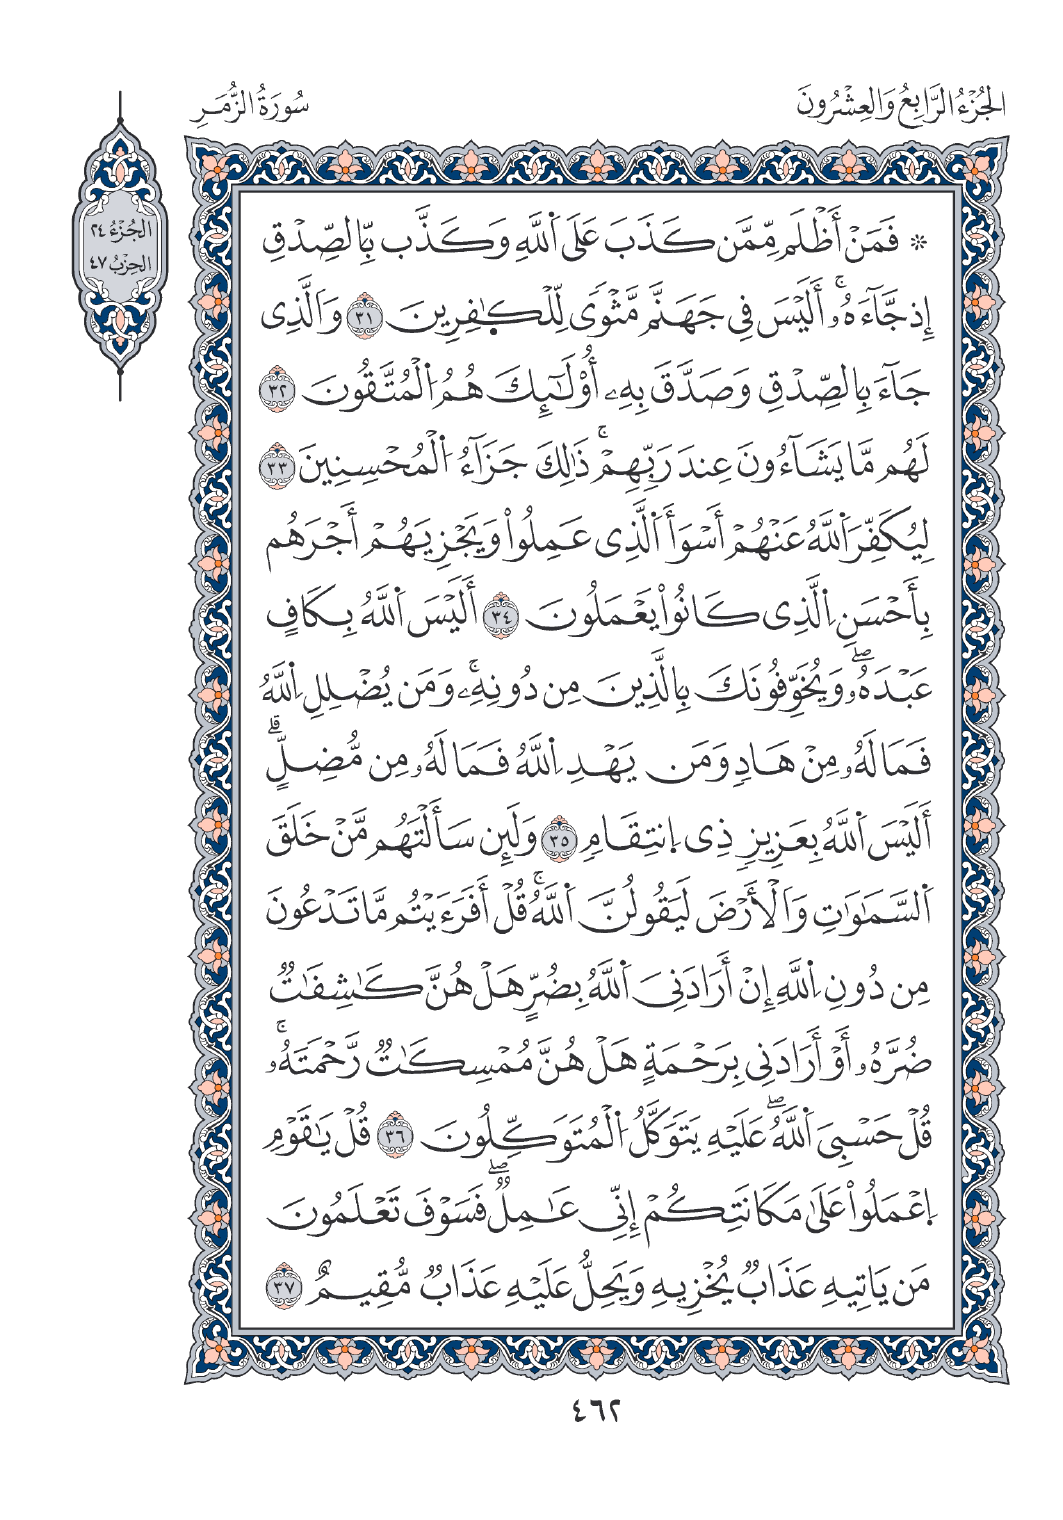 الجُزْءُ الرَّابِعُ وَالعِشْرُونَ
سُورَةُ الزُّمَرِ
الجُزْءُ ٢٤
الحِزْبُ ٤٧
۞ فَمَنْ أَظْلَم مِّمَّن كَذَبَ عَلَى اَ۬للَّهِ وَكَذَّب بِّالصِّدْقِ
إِذ جَّآءَهُۥٓۚ أَلَيْسَ فِي جَهَنَّم مَّثْوٗى لِّلْكٰٜفِرِينَ ٣١ وَالَّذِى
جَآءَ بِالصِّدْقِ وَصَدَّقَ بِهِۦ أُوْلَٰٓئِكَ هُمُ اُ۬لْمُتَّقُونَ ٣٢
لَهُم مَّا يَشَآءُونَ عِندَ رَبِّهِمْۚ ذَٰلِكَ جَزَآءُ اُ۬لْمُحْسِنِينَ ٣٣
لِيُكَفِّرَ اَ۬للَّهُ عَنْهُمْ أَسْوَأَ اَ۬لَّذِى عَمِلُواْ وَيَجْزِيَهُمْ أَجْرَهُم
بِأَحْسَنِ اِ۬لَّذِى كَانُواْ يَعْمَلُونَ ٣٤ أَلَيْسَ اَ۬للَّهُ بِكَافٍ
عَبْدَهُۥۖ وَيُخَوِّفُونَكَ بِالَّذِينَ مِن دُونِهِۦۚ وَمَن يُضْلِلِ اِ۬للَّهُ
فَمَا لَهُۥ مِنْ هَادٖ وَمَن يَهْدِ اِ۬للَّهُ فَمَا لَهُۥ مِن مُّضِلٍّۗ
أَلَيْسَ اَ۬للَّهُ بِعَزِيزٖ ذِى اِ۪نتِقَامٖ ٣٥ وَلَئِن سَأَلْتَهُم مَّنْ خَلَقَ
اَ۬لسَّمَٰوَٰتِ وَالْأَرْضَ لَيَقُولُنَّ اَ۬للَّهُۚ قُلْ أَفَرَءَيْتُم مَّا تَدْعُونَ
مِن دُونِ اِ۬للَّهِ إِنْ أَرَادَنِيَ اَ۬للَّهُ بِضُرٍّ هَلْ هُنَّ كَٰشِفَٰتُ
ضُرِّهِۦٓ أَوْ أَرَادَنِي بِرَحْمَةٍ هَلْ هُنَّ مُمْسِكَٰتٞ رَّحْمَتَهُۥۚ
قُلْ حَسْبِيَ اَ۬للَّهُۖ عَلَيْهِ يَتَوَكَّلُ اُ۬لْمُتَوَكِّلُونَ ٣٦ قُلْ يَٰقَوْمِ
اِ۪عْمَلُواْ عَلَىٰ مَكَانَتِكُمْ إِنِّي عَٰمِلٞۖ فَسَوْفَ تَعْلَمُونَ
مَن يَاتِيهِ عَذَابٞ يُخْزِيهِ وَيَحِلُّ عَلَيْهِ عَذَابٞ مُّقِيمٌ ٣٧
٤٦٢